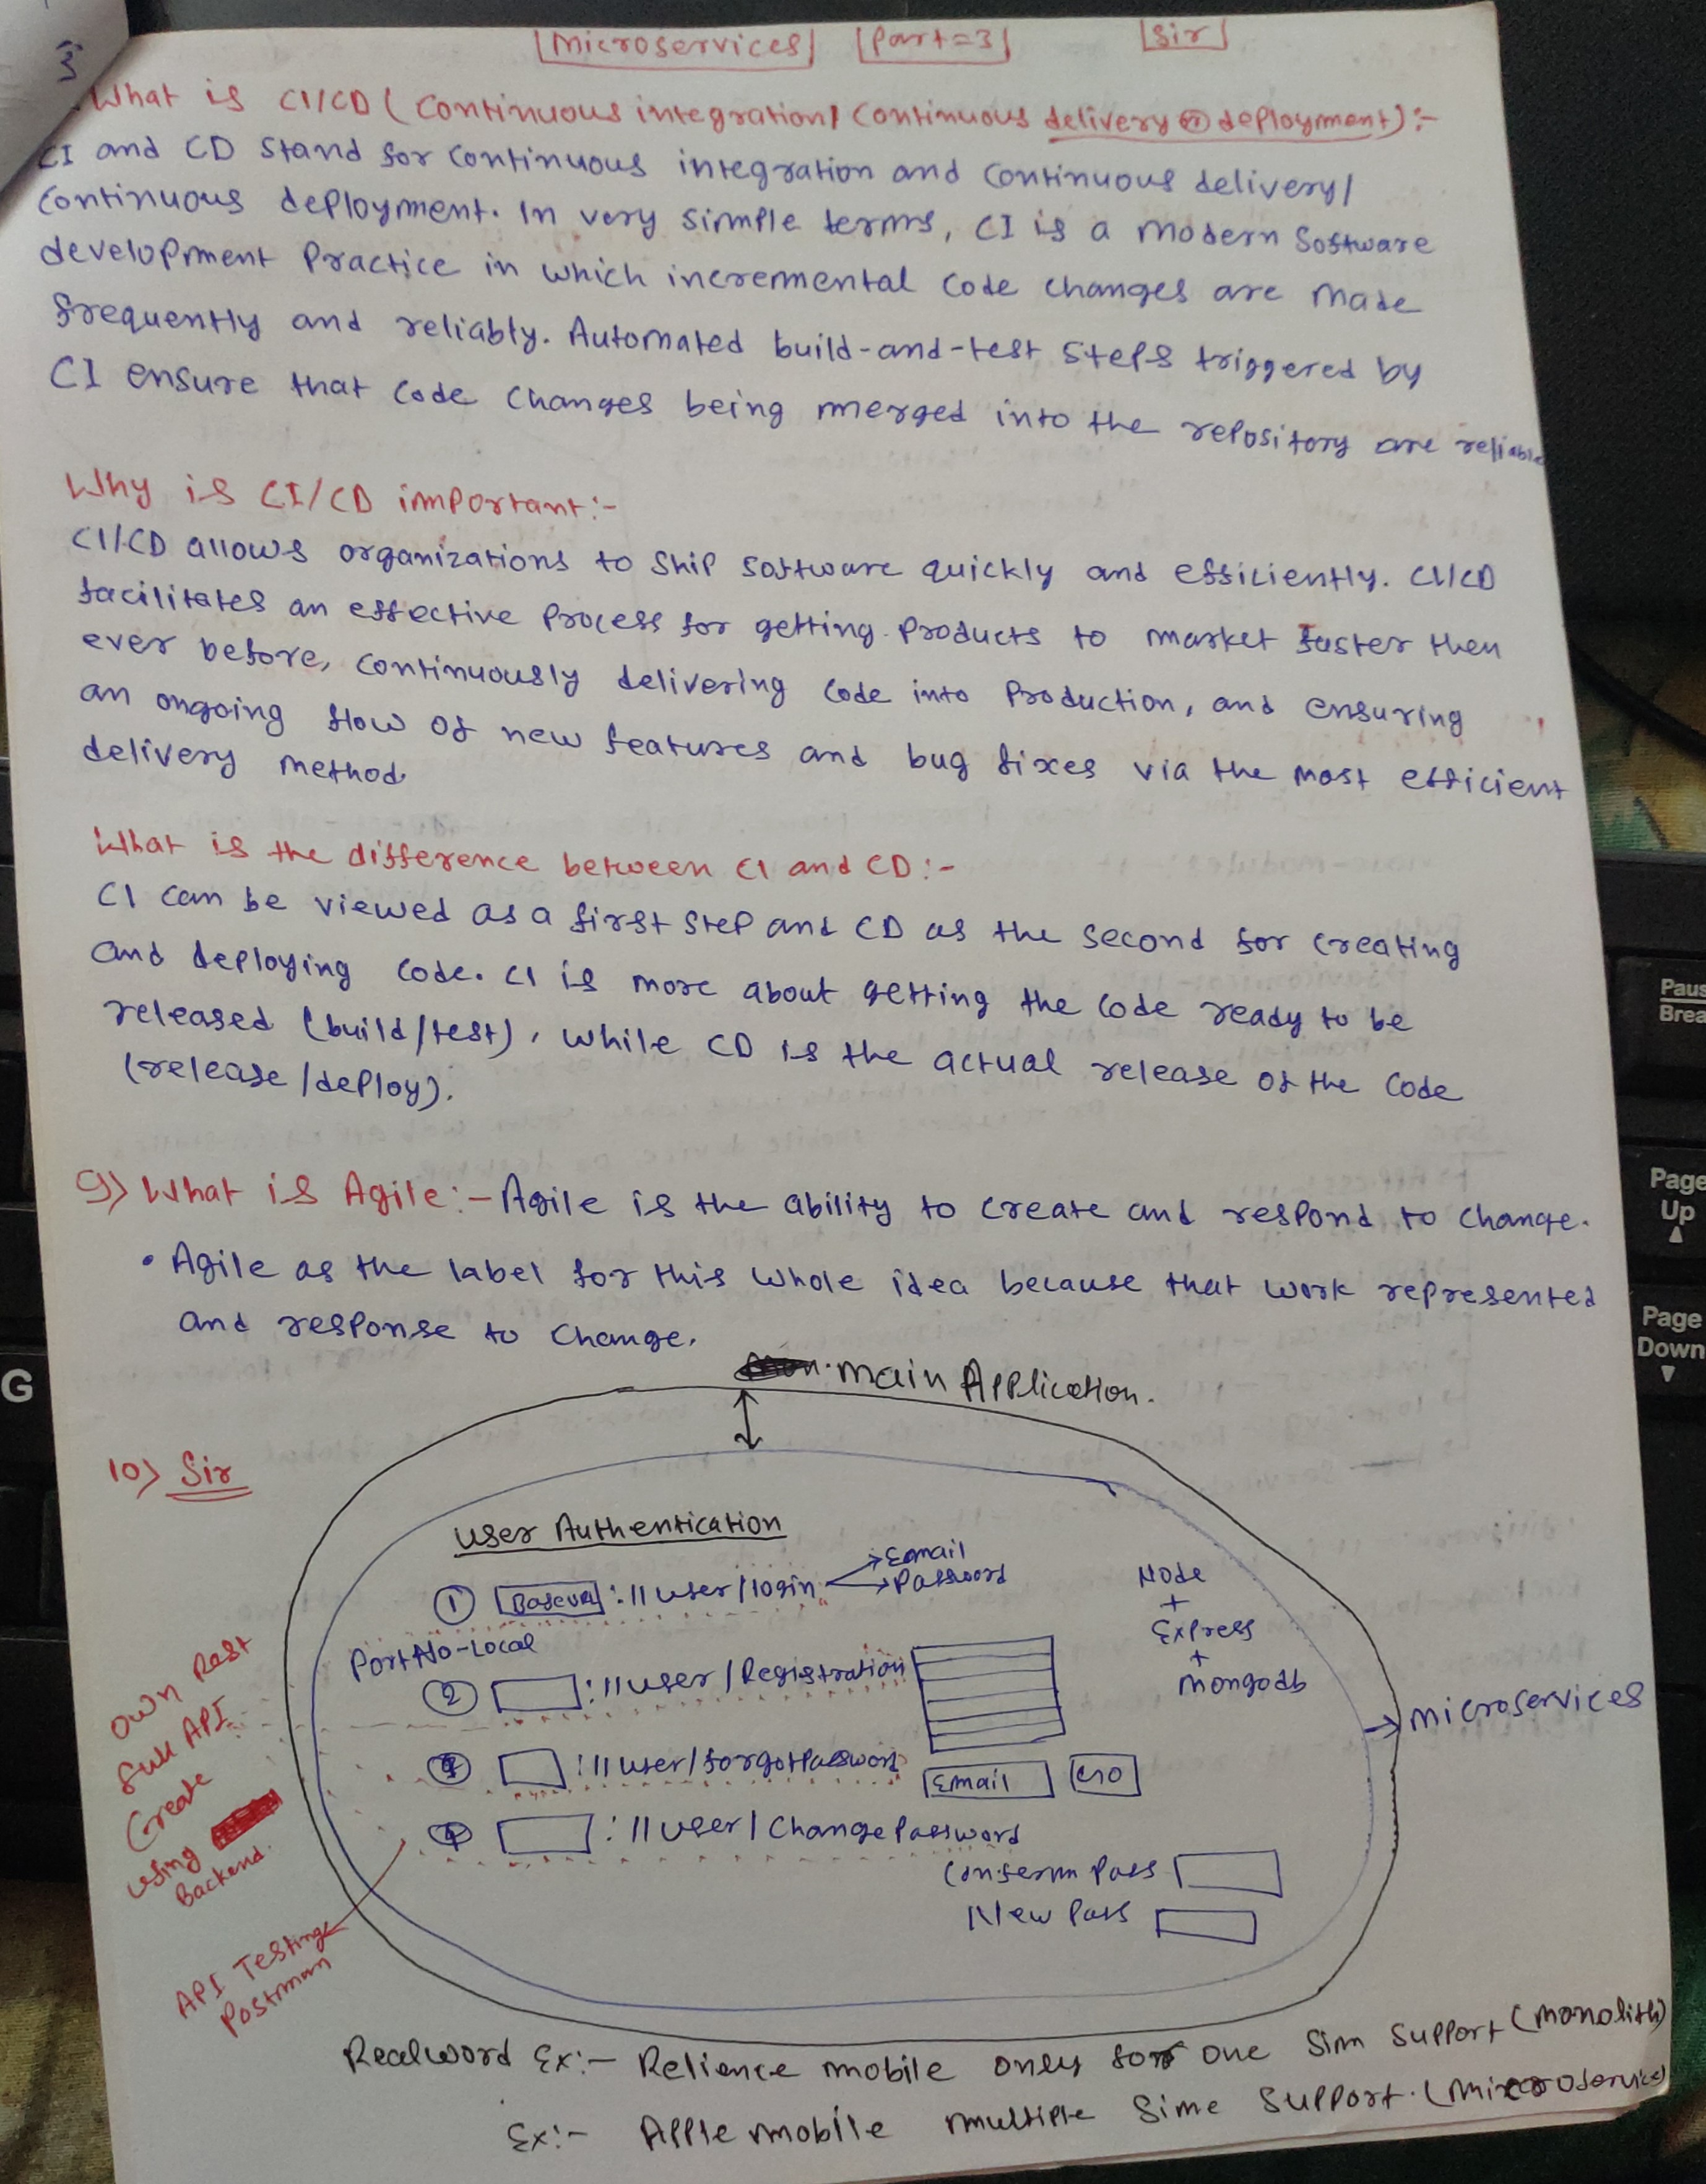 3
Microservices Part=3 Sir
What is CI/CD (Continuous integration/ Continuous delivery or deployment):-
CI and CD Stand for Continuous integration and Continuous delivery/
Continuous deployment. In very simple terms, CI is a modern Software
development Practice in which incremental Code changes are made
frequently and reliably. Automated build-and-test Steps triggered by
CI ensure that Code Changes being merged into the repository are reliable
Why is CI/CD important:-
CI/CD allows organizations to Ship software quickly and efficiently. CI/CD
facilitates an effective Process for getting Products to market faster then
ever before, Continuously delivering Code into Production, and ensuring
an ongoing flow of new features and bug fixes via the most efficient
delivery method.
What is the difference between CI and CD:-
CI can be viewed as a first Step and CD as the second for Creating
and deploying Code. CI is more about getting the Code ready to be
released (build/test), while CD is the actual release of the Code
(release/deploy).
9) What is Agile:- Agile is the ability to create and respond to change.
• Agile as the label for this whole idea because that work represented
and response to Change.
main Application.
10) Sir
User Authentication
① BaseURL ://user/login → Email
→ Password
Node
+
Express
+
Mongodb
Port No-Local
② ://user/Registration
→ microservices
://user/forgotPassword
Email GO
④ ://user/ChangePassword
Conferm Pass
New Pass
own Rest
full API
Create
using
Backend.
API Testing
Postman
Realword Ex:- Relience mobile only for one Sim Support (Monolith)
Ex:- Apple mobile multiple Sime Support. (Microservice)